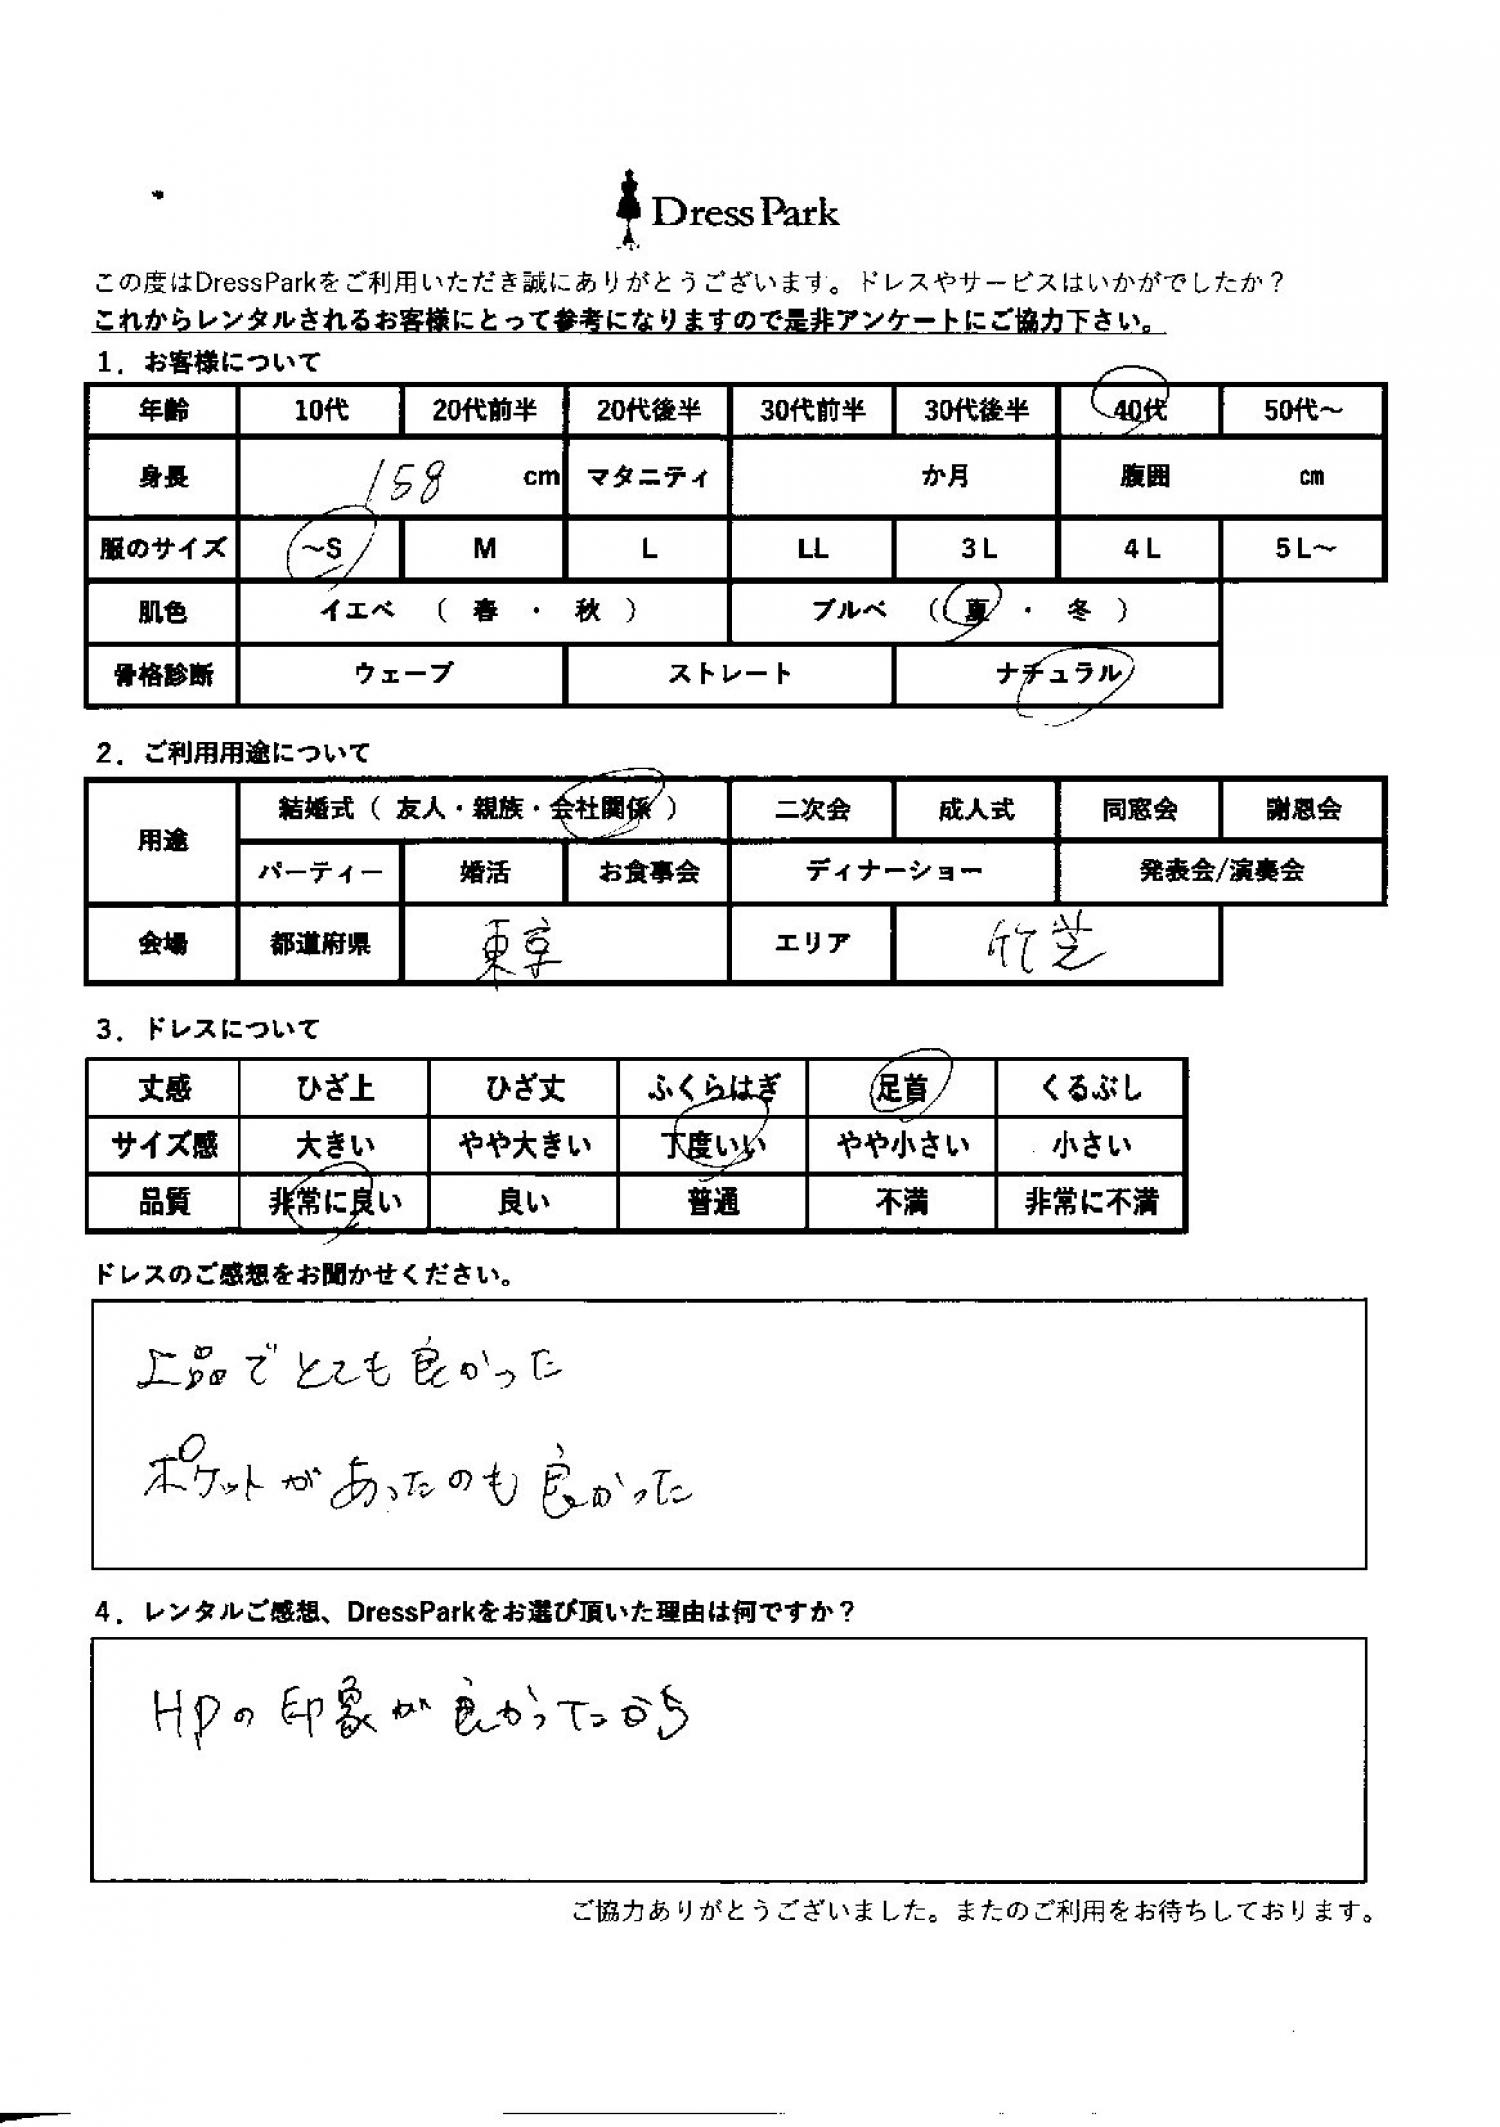 Dress Park
この度はDressParkをご利用いただき誠にありがとうございます。ドレスやサービスはいかがでしたか？
これからレンタルされるお客様にとって参考になりますので是非アンケートにご協力下さい。
1．お客様について
年齢 10代 20代前半 20代後半 30代前半 30代後半 40代 50代～
身長 158 cm マタニティ か月 腹囲 cm
服のサイズ ～S M L LL 3L 4L 5L～
肌色 イエベ （ 春 ・ 秋 ） ブルベ （ 夏 ・ 冬 ）
骨格診断 ウェーブ ストレート ナチュラル
2．ご利用用途について
用途 結婚式（ 友人・親族・会社関係 ） 二次会 成人式 同窓会 謝恩会
パーティー 婚活 お食事会 ディナーショー 発表会/演奏会
会場 都道府県 東京 エリア 竹芝
3．ドレスについて
丈感 ひざ上 ひざ丈 ふくらはぎ 足首 くるぶし
サイズ感 大きい やや大きい 丁度いい やや小さい 小さい
品質 非常に良い 良い 普通 不満 非常に不満
ドレスのご感想をお聞かせください。
上品でとても良かった
ポケットがあったのも良かった
4．レンタルご感想、DressParkをお選び頂いた理由は何ですか？
HPの印象が良かったから
ご協力ありがとうございました。またのご利用をお待ちしております。